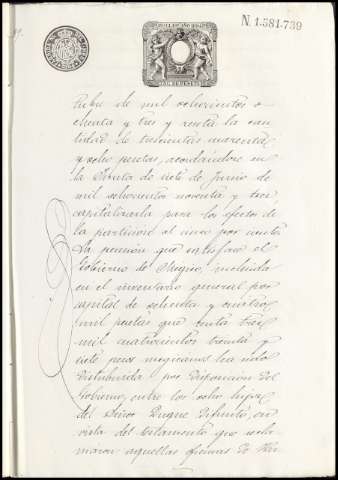 N. 1.581.739
tubre de mil ochocientos o-
chenta y tres y renta la can-
tidad de trescientas cuarenta
y ocho pesetas, acordándose en
la Junta de siete de Junio de
mil ochocientos noventa y tres
capitalizarla para los efectos de
la partición al cinco por ciento
La pensión que satisface el
Gobierno de Mégico, incluida
en el inventario general por
capital de ochenta y cuatro
mil pesetas que renta tres
mil cuatrocientos treinta y
siete pesos megicanos ha sido
distribuida por disposición del
Gobierno, entre los ocho hijos
del Señor Duque difunto, en
vista del testamento que recla-
maron aquellas oficinas de Ha-